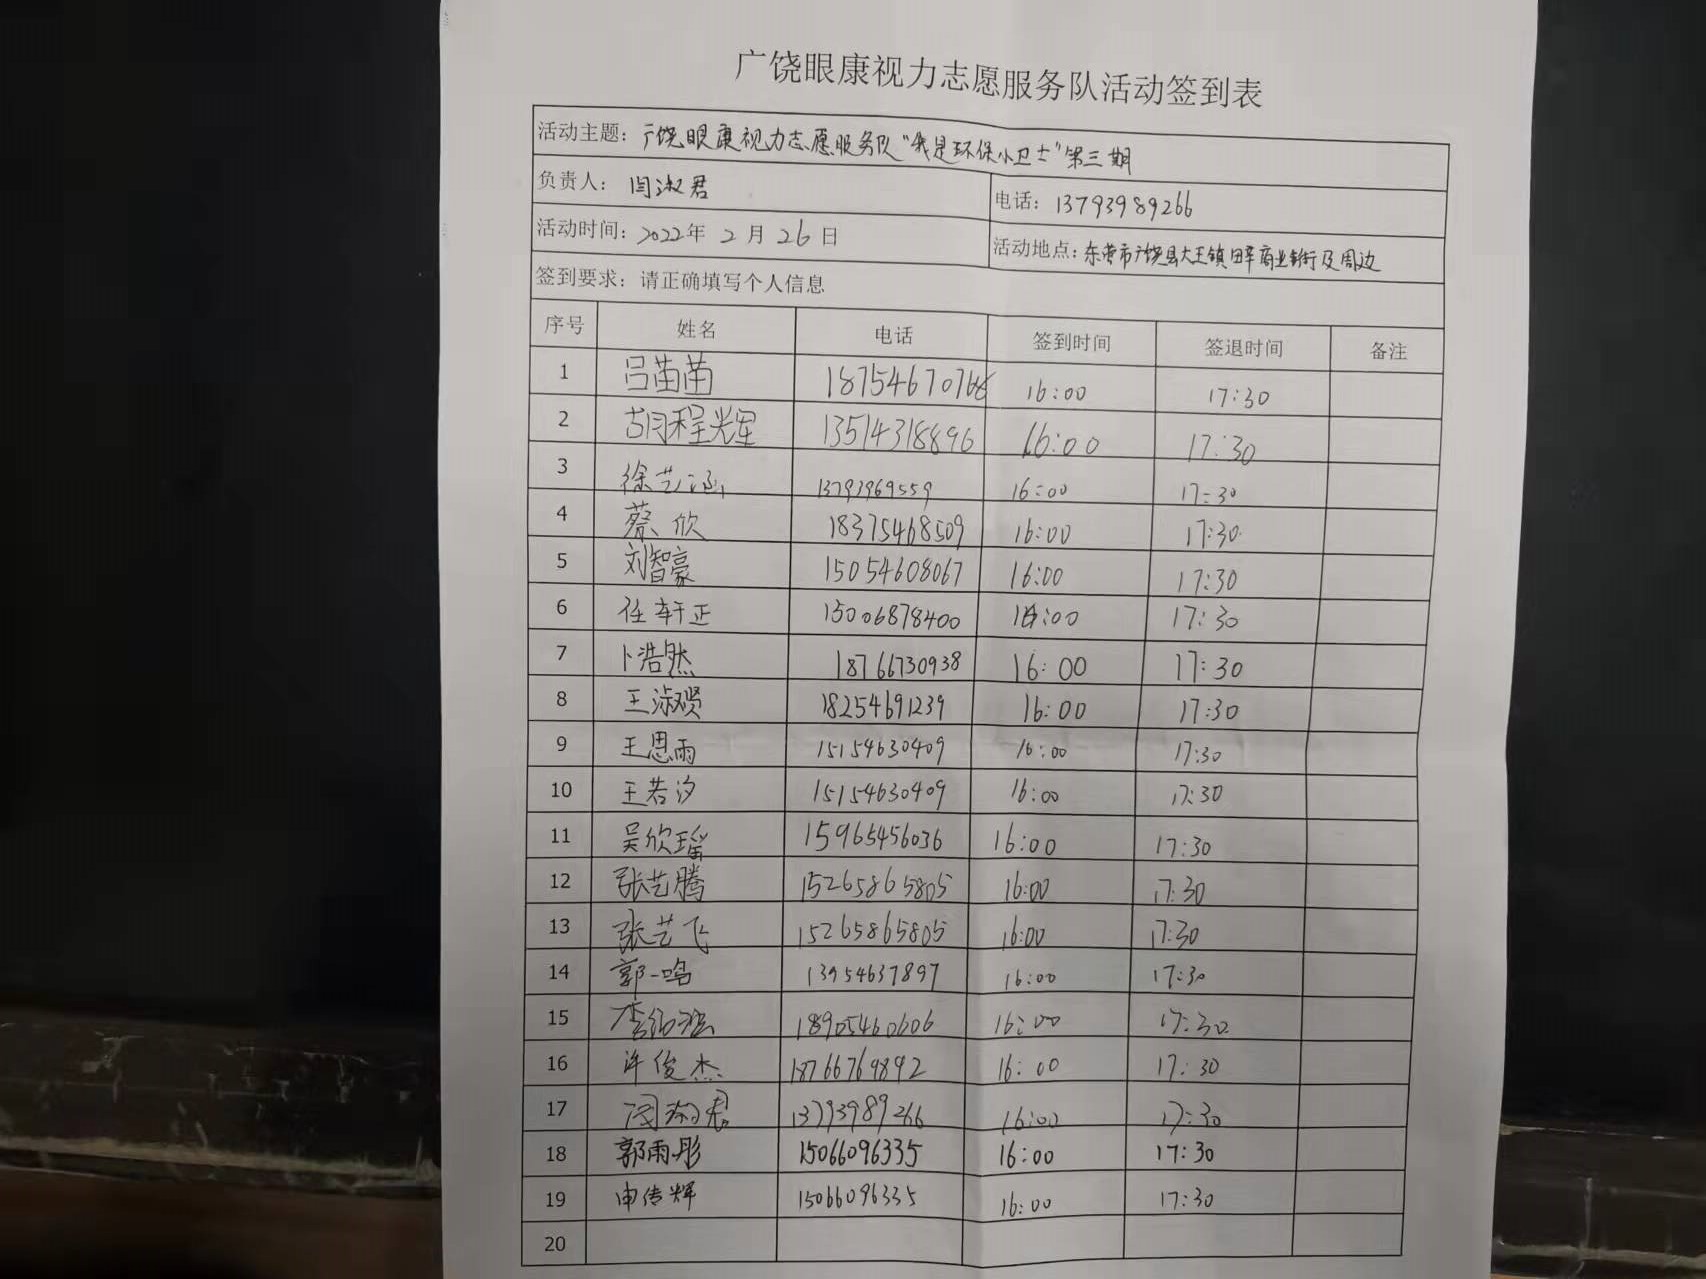 广饶眼康视力志愿服务队活动签到表
活动主题：广饶眼康视力志愿服务队“我是环保小卫士”第三期
负责人：闫淑君 电话：13793989266
活动时间：2022年2月26日 活动地点：东营市广饶县大王镇 商业银行及周边
签到要求：请正确填写个人信息
序号 姓名 电话 签到时间 签退时间 备注
1 吕苗苗 18754670766 16:00 17:30
2 胡程光军 13514318896 16:00 17:30
3 徐艺涵 13793969559 16:00 17:30
4 蔡欣 18375468509 16:00 17:30
5 刘智豪 15054608067 16:00 17:30
6 任轩正 15006878400 16:00 17:30
7 卜浩然 18766730938 16:00 17:30
8 王淑贤 18254691239 16:00 17:30
9 王思雨 15154630409 16:00 17:30
10 王若汐 15154630409 16:00 17:30
11 吴欣瑶 15965456036 16:00 17:30
12 张艺腾 15265865805 16:00 17:30
13 张艺飞 15265865805 16:00 17:30
14 郭一鸣 13954637897 16:00 17:30
15 李 18905460606 16:00 17:30
16 许俊杰 18766769892 16:00 17:30
17 闫淑君 13793989266 16:00 17:30
18 郭雨彤 15066096335 16:00 17:30
19 申传辉 15066096335 16:00 17:30
20